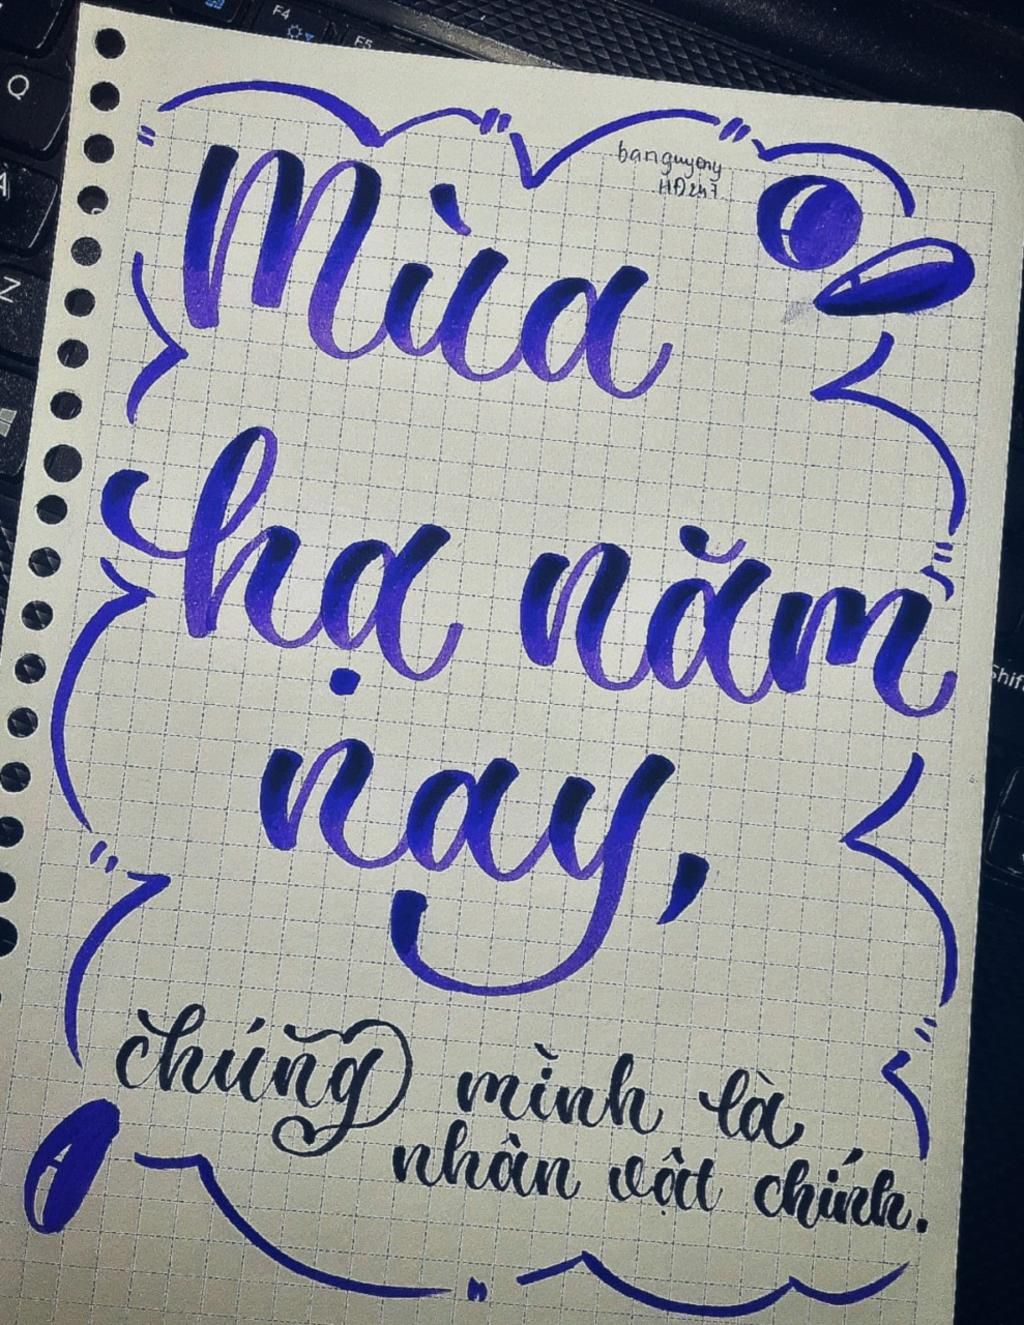 F4
F5
Q
banguyeny
HĐ247
Mùa
A
Z
hạ năm
Shift
nay,
chúng mình là
nhân vật chính.